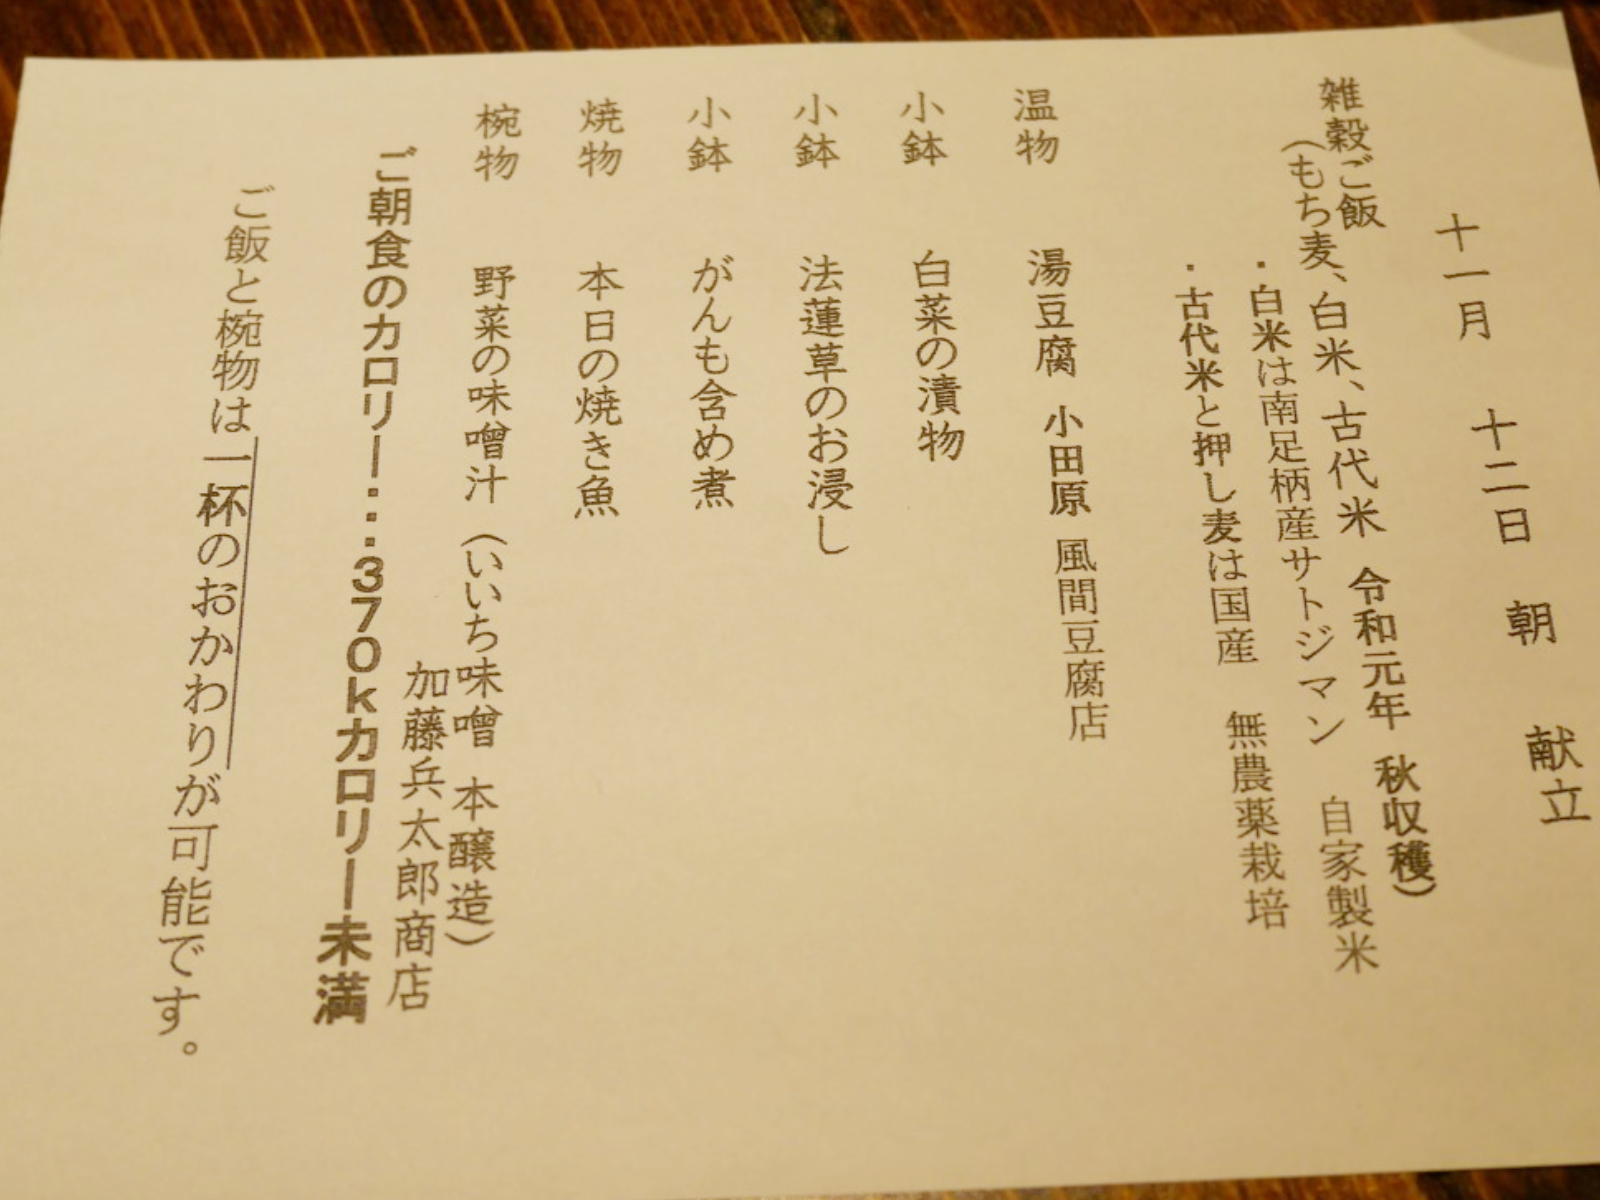 十一月 十二日 朝 献立
雑穀ご飯
（もち麦、白米、古代米 令和元年 秋収穫）
・白米は南足柄産サトジマン 自家製米
・古代米と押し麦は国産 無農薬栽培
温物 湯豆腐 小田原 風間豆腐店
小鉢 白菜の漬物
小鉢 法蓮草のお浸し
小鉢 がんも含め煮
焼物 本日の焼き魚
椀物 野菜の味噌汁（いいち味噌 本醸造）
加藤兵太郎商店
ご朝食のカロリー：：370kカロリー未満
ご飯と椀物は一杯のおかわりが可能です。